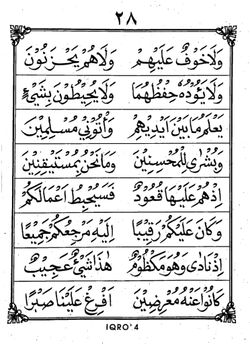 ٢٨
وَلَاخَوْفٌ عَلَيْهِمْ وَلَاهُمْ يَحْزَنُوْنَ
وَلَا يَؤُدُهٗ حِفْظُهُمَا وَلَا يُحِيْطُوْنَ بِشَيْءٍ
يَعْلَمُ مَابَيْنَ اَيْدِيْهِمْ وَأْتُوْنِيْ مُسْلِمِيْنَ
وَبُشْرٰى لِلْمُحْسِنِيْنَ وَمَانَحْنُ بِمُسْتَيْقِنِيْنَ
اِذْهُمْ عَلَيْهَا قُعُوْدٌ فَسَيُحْبِطُ اَعْمَالَكُمْ
وَكَانَ عَلَيْكُمْ رَقِيْبًا اِلَيْهِ مَرْجِعُكُمْ جَمِيْعًا
اِذْنَادٰى وَهُوَ مَكْظُوْمٌ هٰذَا شَيْءٌ عَجِيْبٌ
كَانُوْا عَنْهُ مُعْرِضِيْنَ اَفْرِغْ عَلَيْنَا صَبْرًا
IQRO' 4